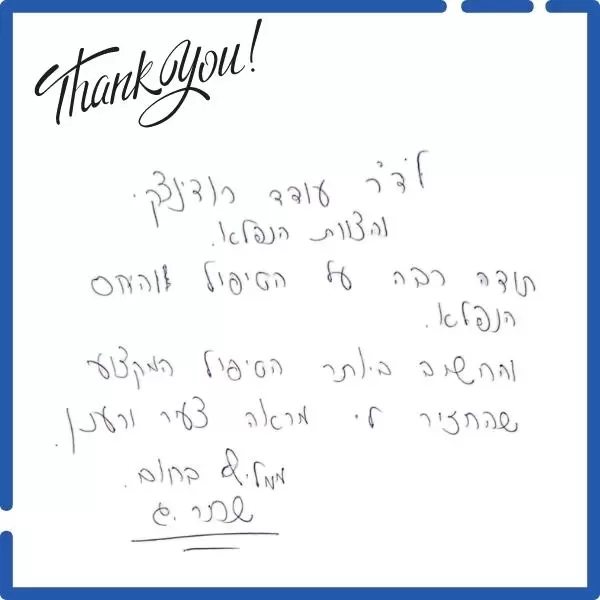 Thank you!
לד"ר עודד רודניצקי.
והצוות הנפלא.
תודה רבה על הטיפול והיחס
הנפלא.
והחשוב ביותר הטיפול המקצועי
שהחזיר לי מראה צעיר ורענן.
בחום.
ג.